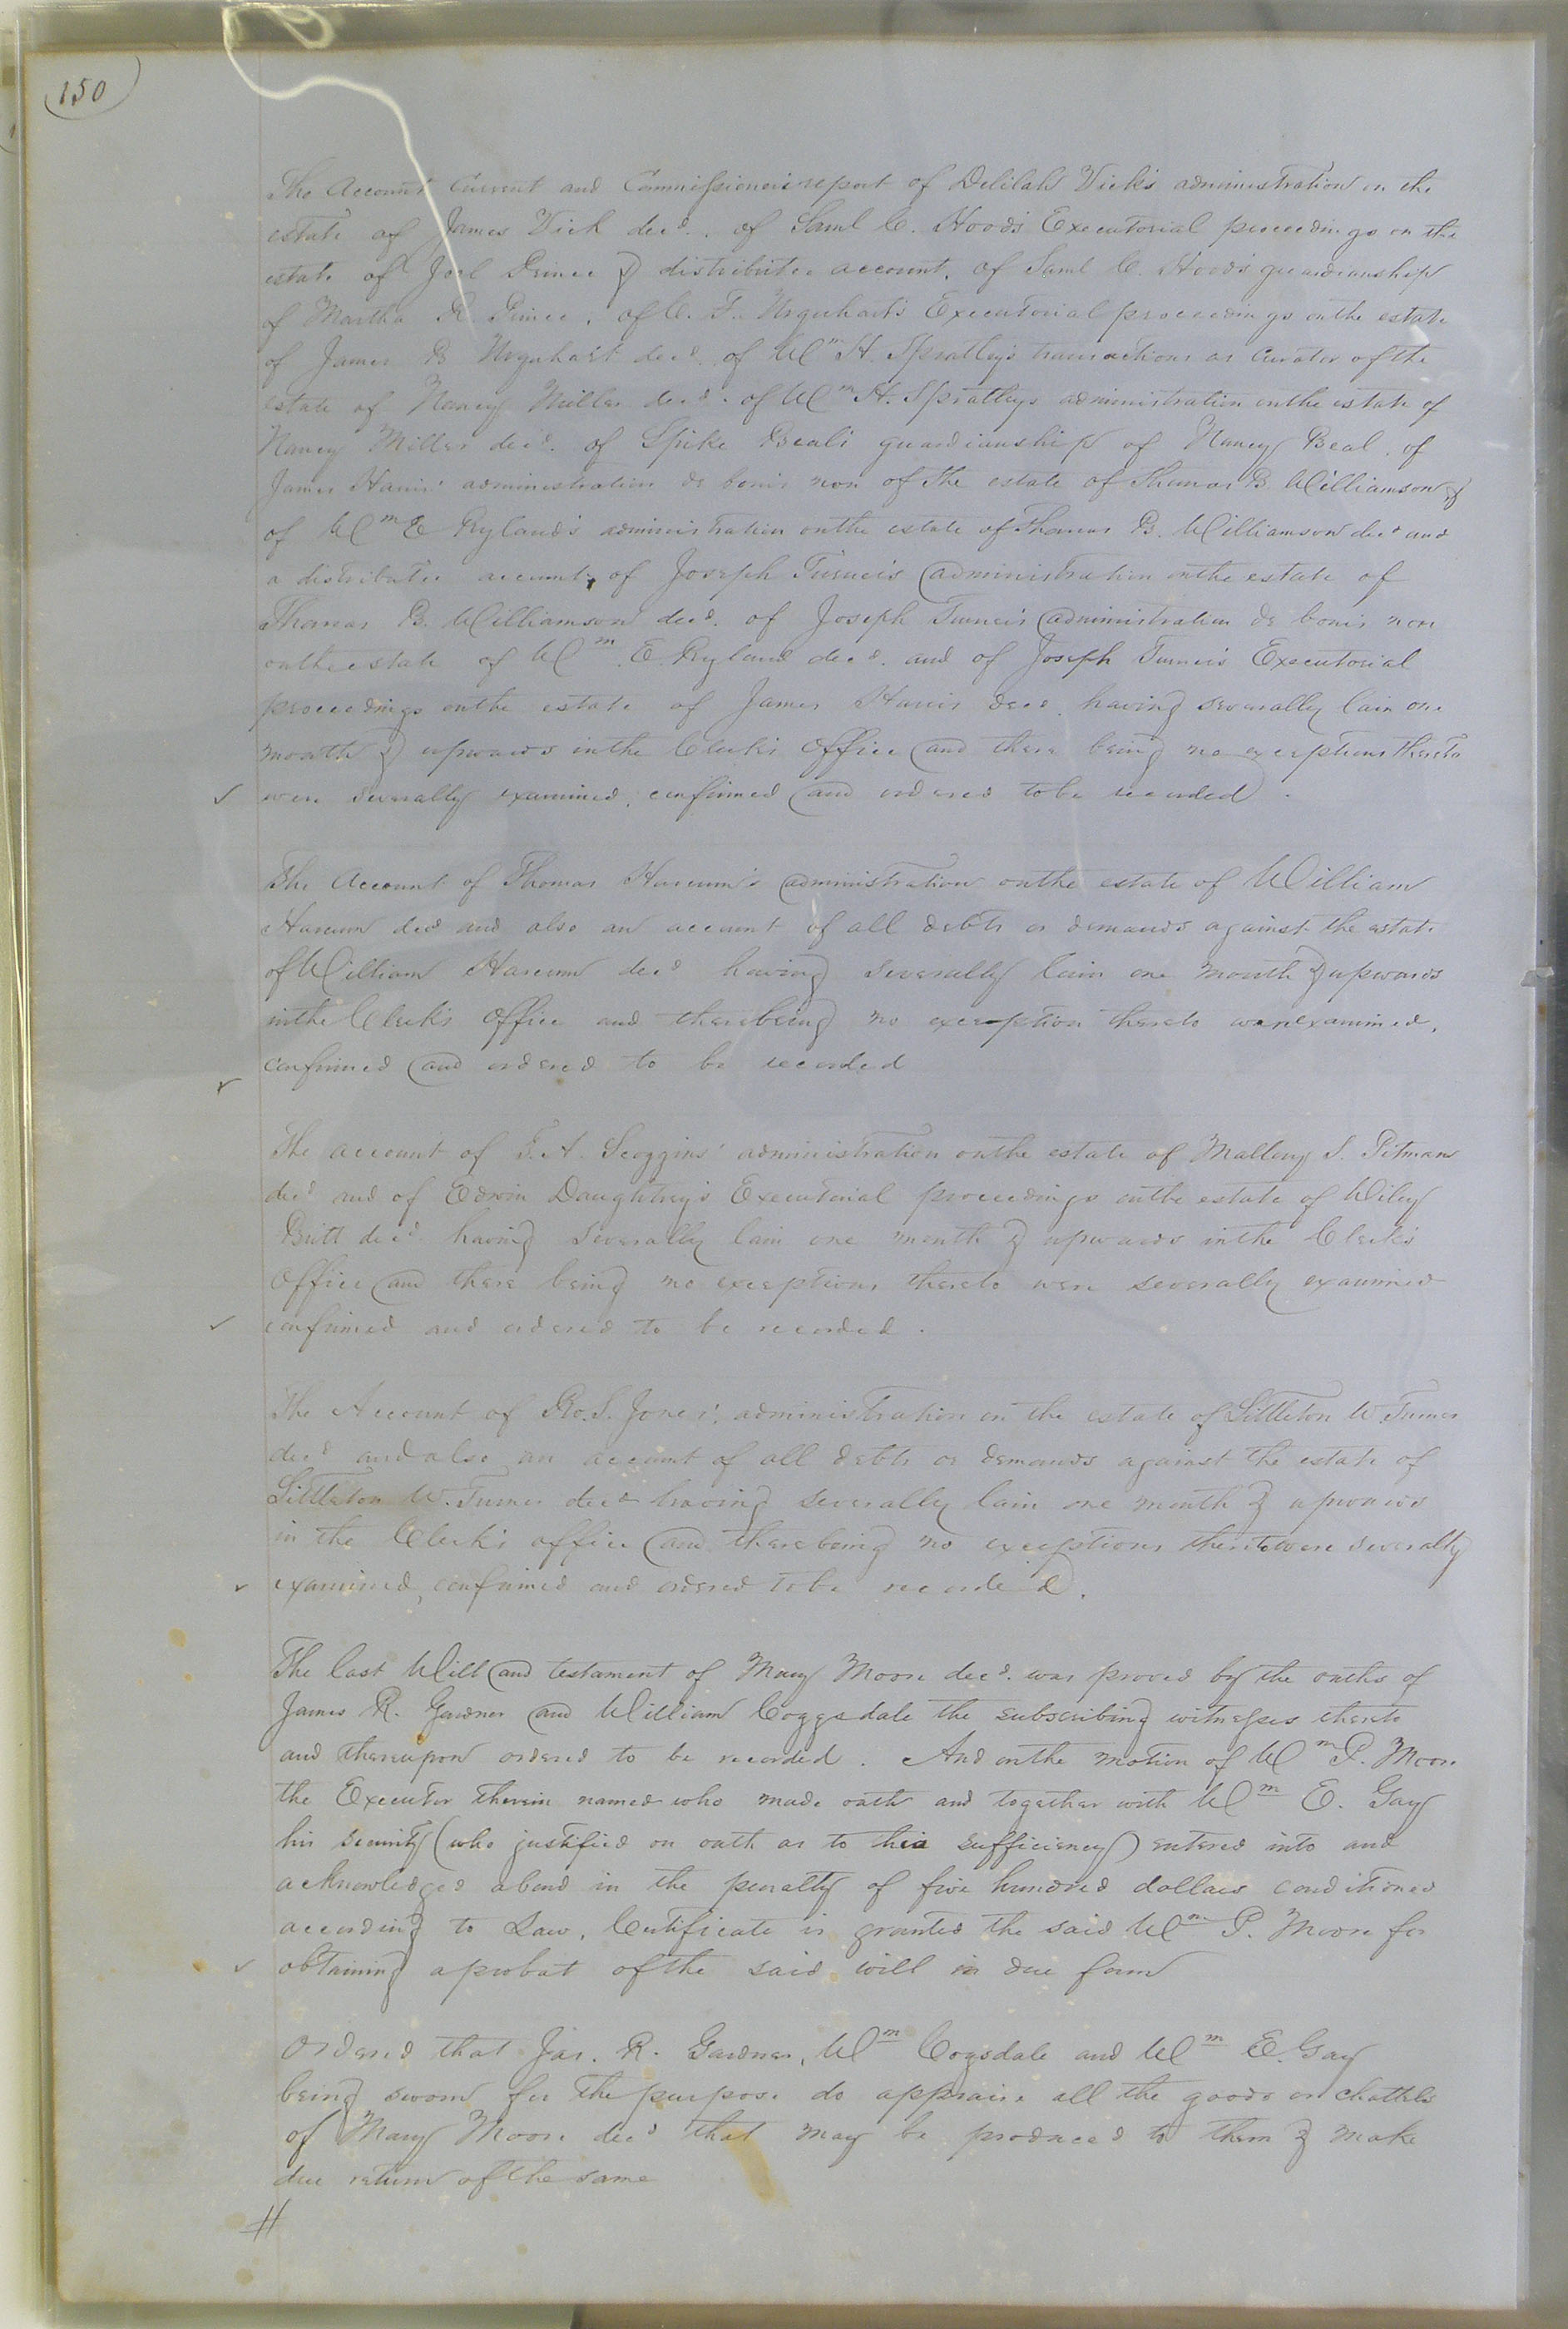 150
The Account Current and Commissioners report of Delilah Vick's administration on the
estate of James Vick decd. of Saml C. Hood's Executorial proceedings on the
estate of Joel Prince & distributee account, of Saml C. Hood's guardianship
of Martha R Prince, of C. F. Urquhart's Executorial proceedings on the estate
of James B Urquhart decd. of Wm H. Spratley's transactions as Curator of the
estate of Nancy Miller decd. of Wm H. Spratleys administration on the estate of
Nancy Miller decd. of Spike Beal's guardianship of Nancy Beal, of
James Harris' administration de bonis non of the estate of Thomas B. Williamson, &
of Wm E Ryland's administration on the estate of Thomas B. Williamson decd and
a distributee account, of Joseph Turner's administration on the estate of
Thomas B. Williamson decd. of Joseph Turner's administration de bonis non
on the estate of Wm E. Ryland decd. and of Joseph Turner's Executorial
proceedings on the estate of James Harris decd. having severally lain one
month & upwards in the Clerk's Office and there being no exceptions thereto
were severally examined, confirmed and ordered to be recorded.
The Account of Thomas Harcum's administration on the estate of William
Harcum decd and also an account of all debts or demands against the estate
of William Harcum decd having severally lain one month & upwards
in the Clerk's Office and there being no exception thereto were examined,
confirmed and ordered to be recorded
The account of T. A. Scoggins' administration on the estate of Mallory S. Pitman
decd and of Edwin Daughtrey's Executorial proceedings on the estate of Wiley
Britt decd. having severally lain one month & upwards in the Clerk's
Office and there being no exceptions thereto were severally examined
confirmed and ordered to be recorded.
The Account of Ro. S. Jones' administration on the estate of Littleton W. Turner
decd and also an account of all debts or demands against the estate of
Littleton W. Turner decd having severally lain one month & upwards
in the Clerk's office and there being no exceptions thereto were severally
examined, confirmed and ordered to be recorded.
The last Will and testament of Mary Moore decd. was proved by the oaths of
James R. Gardner and William Coggsdale the subscribing witnesses thereto
and thereupon ordered to be recorded. And on the motion of Wm P. Moore
the Executor therein named who made oath and together with Wm E. Gay
his security (who justified on oath as to his sufficiency) entered into and
acknowledged a bond in the penalty of five hundred dollars conditioned
according to Law, Certificate is granted the said Wm P. Moore for
obtaining a probat of the said will in due form
Ordered that Jas. R. Gardner, Wm Cogsdale and Wm E. Gay
being sworn for the purpose do appraise all the goods or chattels
of Mary Moore decd that may be produced to them & make
due return of the same